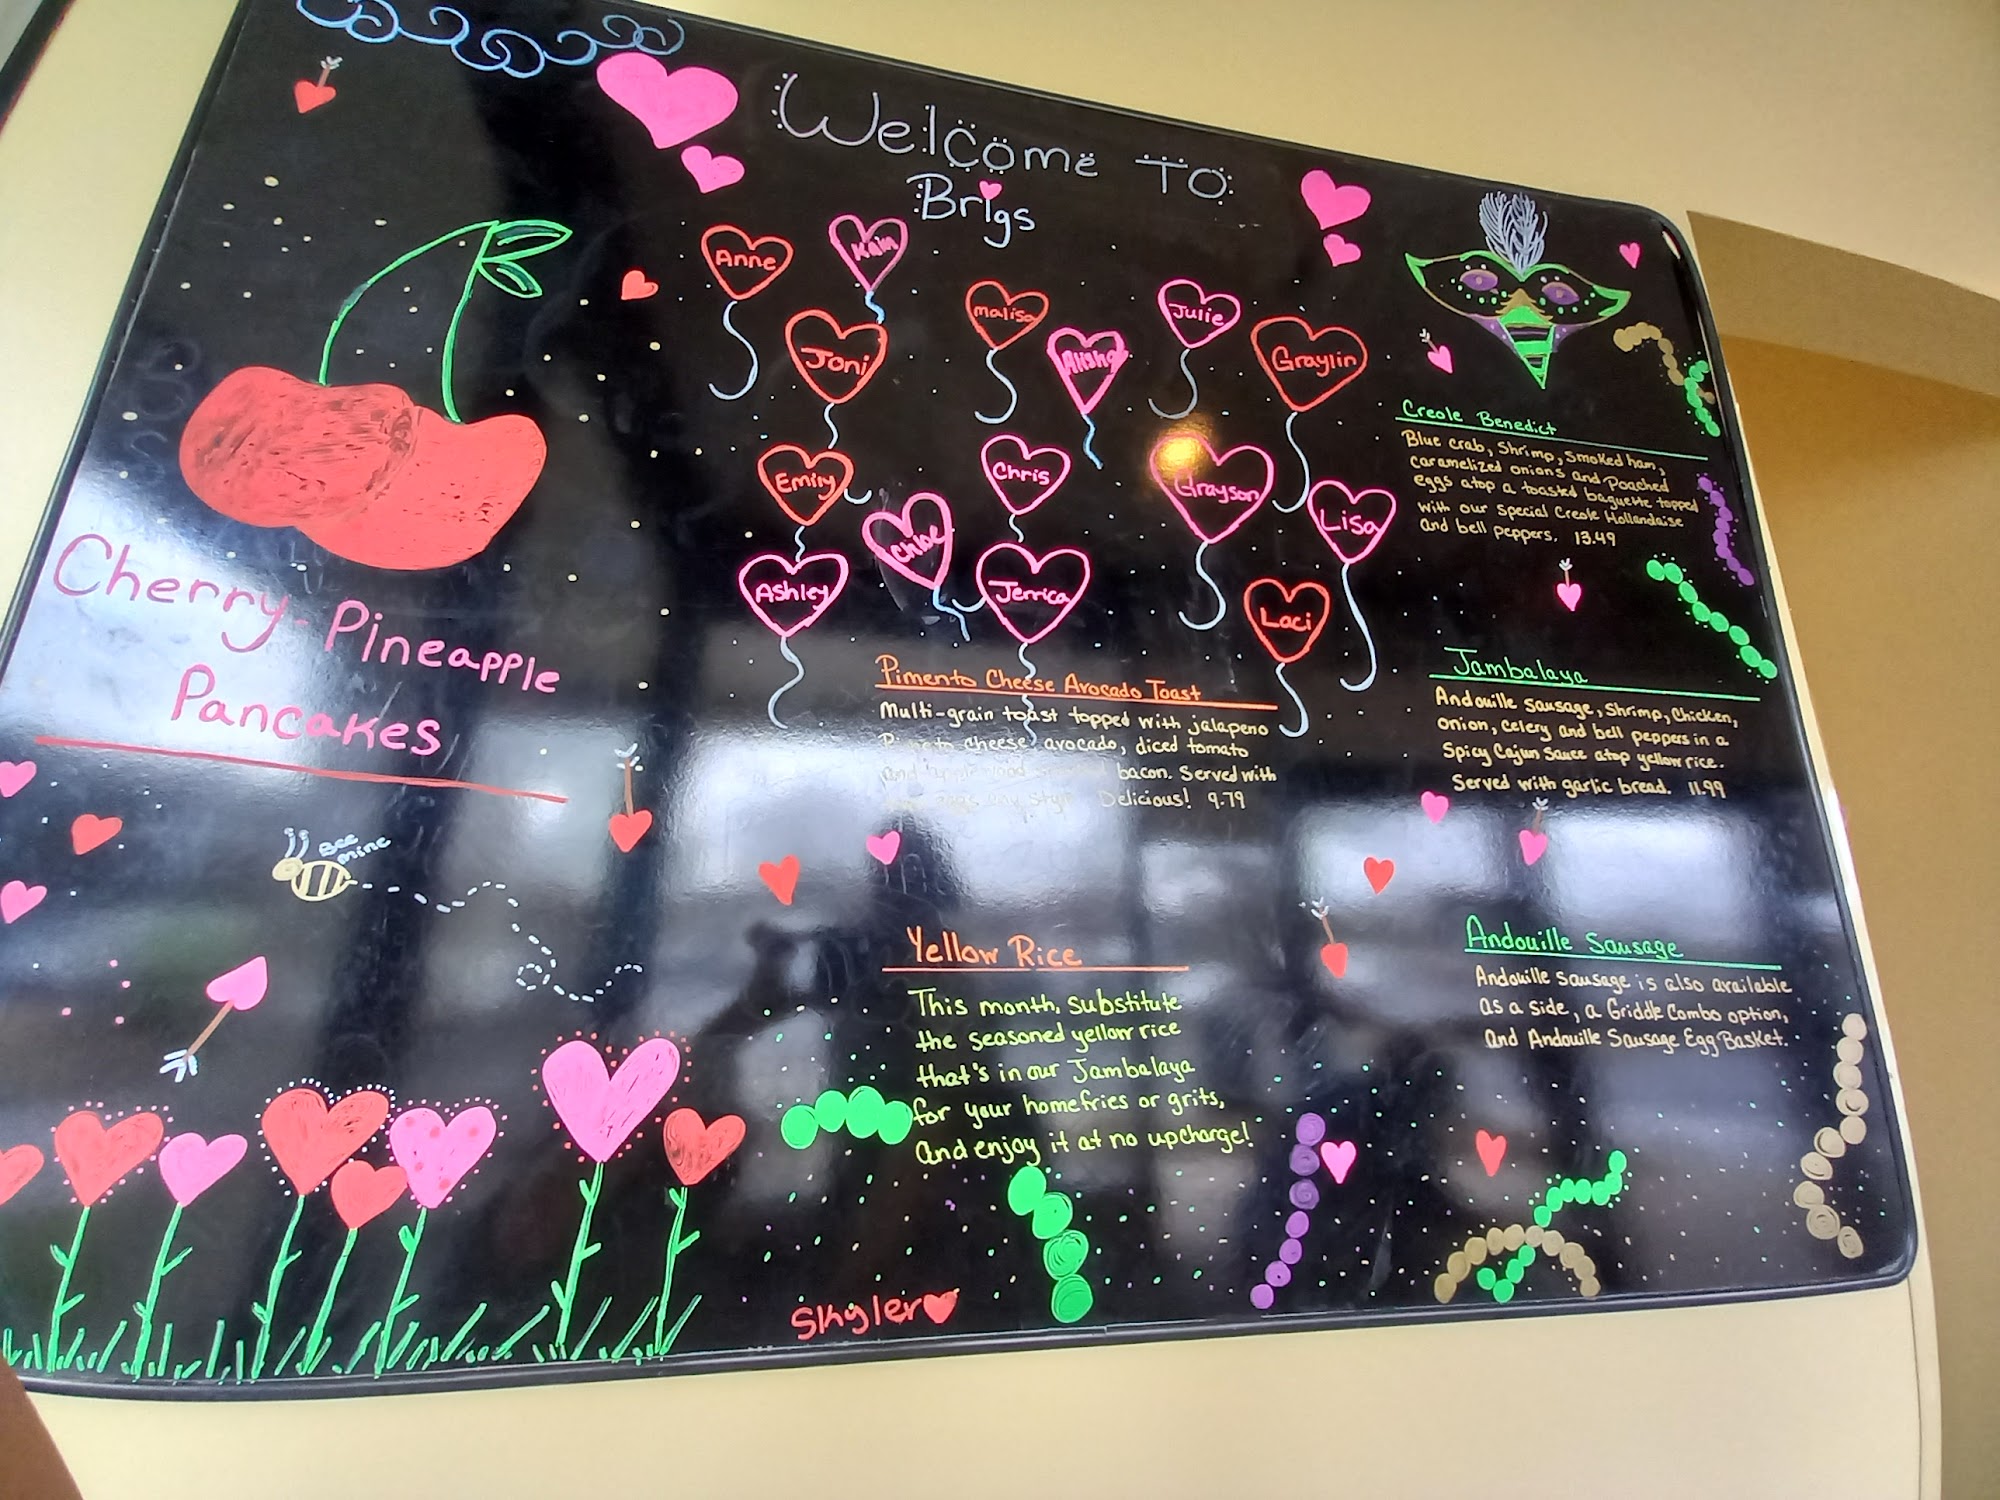 Welcome To
Brigs
Anne
Joni
Malisa
Julie
Graylin
Emily
Chris
Grayson
Lisa
Chloe
Ashley
Jerrica
Laci
Cherry-Pineapple
Pancakes
Bee
mine
Pimento Cheese Avocado Toast
Multi-grain toast topped with jalapeno
Pimento cheese, avocado, diced tomato
and applewood smoked bacon. Served with
eggs any style. Delicious! 9.79
Yellow Rice
This month, substitute
the seasoned yellow rice
that's in our Jambalaya
for your homefries or grits,
and enjoy it at no upcharge!
Skyler
Creole Benedict
Blue crab, Shrimp, Smoked ham,
caramelized onions and Poached
eggs atop a toasted baguette topped
with our special Creole Hollandaise
and bell peppers. 13.49
Jambalaya
Andouille sausage, Shrimp, Chicken,
onion, celery and bell peppers in a
Spicy Cajun Sauce atop yellow rice.
Served with garlic bread. 11.99
Andouille Sausage
Andouille sausage is also available
as a side, a Griddle Combo option,
and Andouille Sausage Egg Basket.